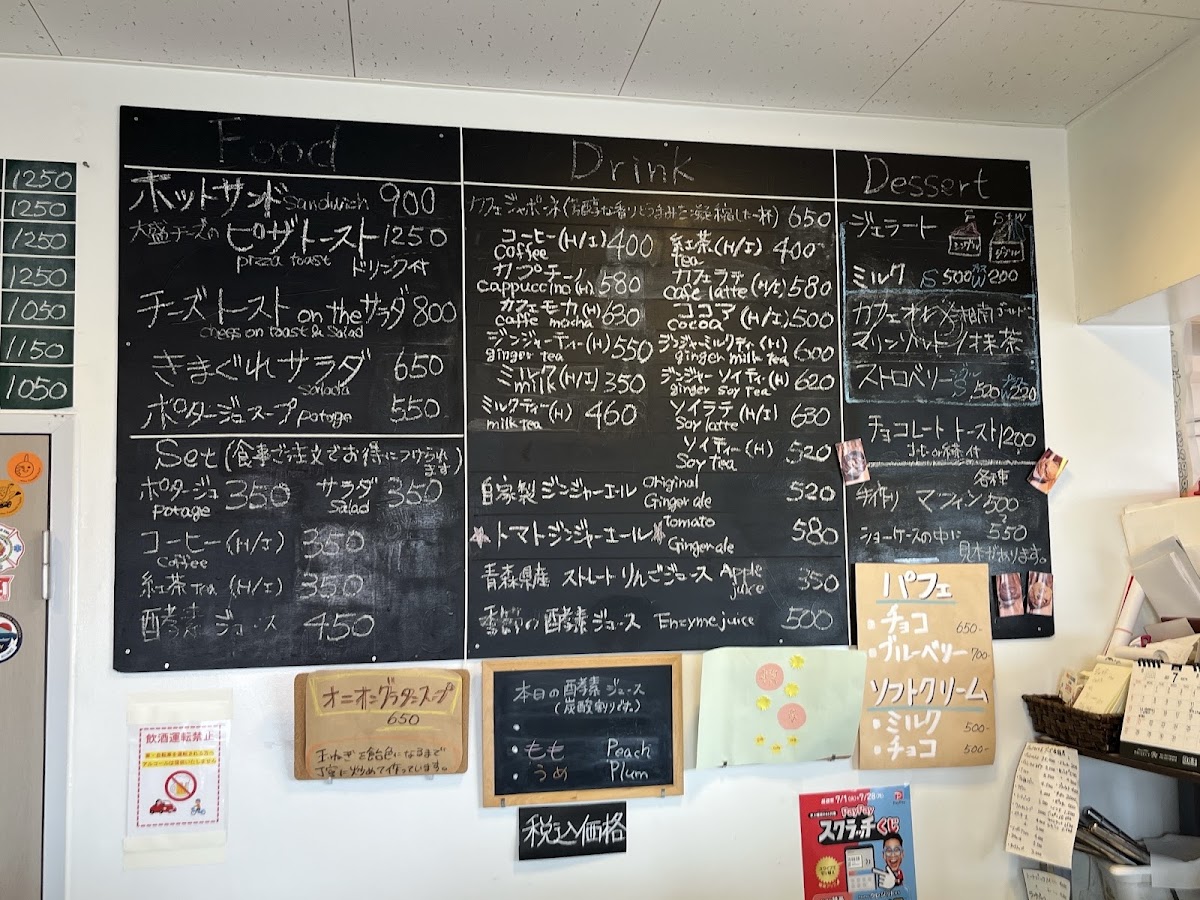 1250
1250
1250
1250
1050
1150
1050
Food
ホットサンド Sandwich 900
大盛チーズの ピザトースト 1250
pizza toast ドリンク付
チーズトースト on the サラダ 800
chees on toast & Salad
きまぐれサラダ 650
Salada
ポタージュスープ potage 550
Set (食事ご注文でお得につけられます)
ポタージュ 350 サラダ 350
Potage Salad
コーヒー (H/I) 350
Coffee
紅茶 Tea (H/I) 350
酵素 ジュース 450
Drink
カフェジャポネ (芳醇な香りとうまみを凝縮した一杯) 650
コーヒー (H/I) 400 紅茶 (H/I) 400
Coffee tea
カプチーノ 580 カフェラテ (H/I) 580
cappuccino (H) cafe latte
カフェモカ (H) 630 ココア (H/I) 500
caffe mocha cocoa
ジンジャーティー (H) 550 ジンジャーミルクティー (H) 600
ginger tea ginger milk tea
ミルク (H/I) 350 ジンジャー ソイティー (H) 620
milk ginger soy tea
ミルクティー (H) 460 ソイラテ (H/I) 630
milk tea Soy latte
ソイティー (H) 520
Soy tea
自家製 ジンジャーエール Original Ginger ale 520
トマトジンジャーエール Tomato Ginger ale 580
青森県産 ストレートりんごジュース Apple juice 350
季節の酵素ジュース Enzyme juice 500
Dessert
ジェラート S シングル W ダブル
ミルク S 500
カフェオレ
抹茶
ストロベリー
チョコレートトースト 1200
コーヒー or 紅茶 付
各種
手作り マフィン 500
550
ショーケースの中に
見本があります。
パフェ
・チョコ 650-
・ブルーベリー 700-
ソフトクリーム
・ミルク 500-
・チョコ 500-
オニオングラタンスープ
650
玉ねぎを飴色になるまで
丁寧に炒めて作っています。
本日の酵素ジュース
(炭酸割りです。)
・もも Peach
・うめ Plum
税込価格
飲酒運転禁止
PayPay
スクラッチくじ
7